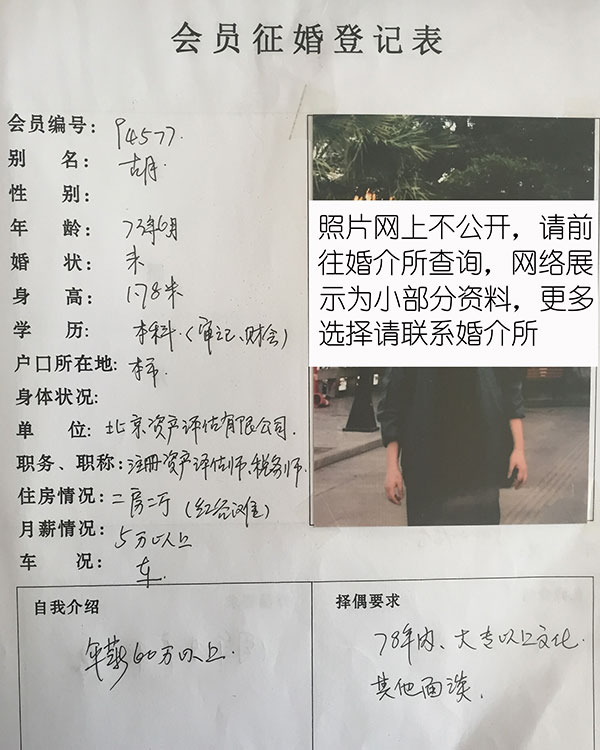 会员征婚登记表
会员编号: 94577.
别 名: 胡.
性 别:
年 龄: 73年6月
婚 状: 未
身 高: 1.78米
学 历: 本科.(审记、财会)
户口所在地: 本市.
身体状况:
单 位: 北京资产评估有限公司.
职务、职称: 注册资产评估师、税务师.
住房情况: 二房二厅(红谷滩)
月薪情况: 5万以上
车 况: 车.
照片网上不公开，请前
往婚介所查询，网络展
示为小部分资料，更多
选择请联系婚介所
自我介绍
年薪60万以上.
择偶要求
78年内、大专以上文化.
其他面谈.